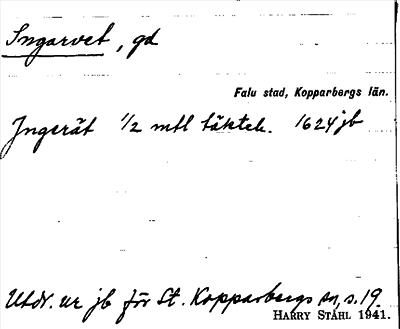 Ingarvet, gd
Falu stad, Kopparbergs län.
Ingerät 1/2 mtl täkteh. 1624 jb
Utdr. ur jb för St. Kopparbergs sn, s. 19.
HARRY STÅHL 1941.